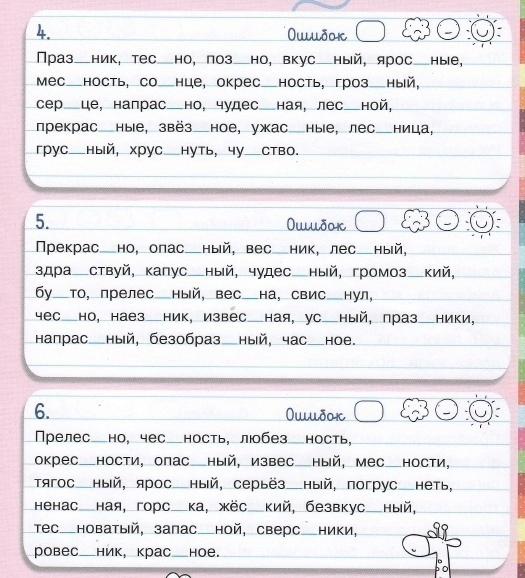 4. Ошибок
Праз__ник, тес__но, поз__но, вкус__ный, ярос__ные,
мес__ность, со__нце, окрес__ность, гроз__ный,
сер__це, напрас__но, чудес__ная, лес__ной,
прекрас__ные, звёз__ное, ужас__ные, лес__ница,
грус__ный, хрус__нуть, чу__ство.
5. Ошибок
Прекрас__но, опас__ный, вес__ник, лес__ный,
здра__ствуй, капус__ный, чудес__ный, громоз__кий,
бу__то, прелес__ный, вес__на, свис__нул,
чес__но, наез__ник, извес__ная, ус__ный, праз__ники,
напрас__ный, безобраз__ный, час__ное.
6. Ошибок
Прелес__но, чес__ность, любез__ность,
окрес__ности, опас__ный, извес__ный, мес__ности,
тягос__ный, ярос__ный, серьёз__ный, погрус__неть,
ненас__ная, горс__ка, жёс__кий, безвкус__ный,
тес__новатый, запас__ной, сверс__ники,
ровес__ник, крас__ное.